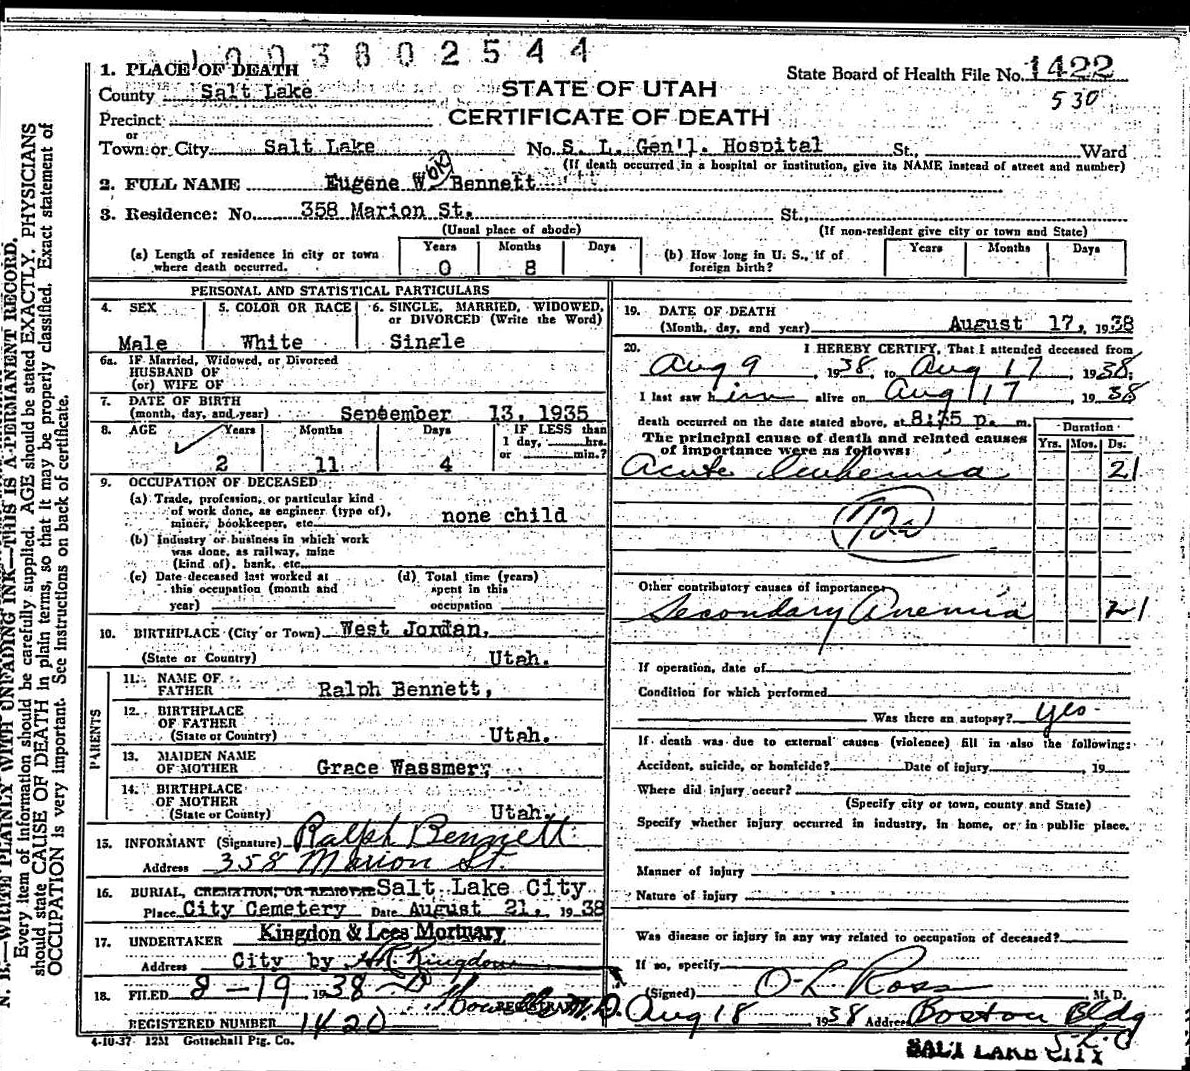 1003802544
1. PLACE OF DEATH
State Board of Health File No. 1422
County Salt Lake
STATE OF UTAH
530
Precinct
CERTIFICATE OF DEATH
or
Town or City Salt Lake No. S. L. Gen'l. Hospital St., Ward
(If death occurred in a hospital or institution, give its NAME instead of street and number)
2. FULL NAME Eugene W Bennett
3. Residence: No. 358 Marion St. St.,
(Usual place of abode) (If non-resident give city or town and State)
(a) Length of residence in city or town where death occurred. Years 0 Months 8 Days
(b) How long in U. S., if of foreign birth? Years Months Days
PERSONAL AND STATISTICAL PARTICULARS
4. SEX Male
5. COLOR OR RACE White
6. SINGLE, MARRIED, WIDOWED, or DIVORCED (Write the Word) Single
6a. IF Married, Widowed, or Divorced
HUSBAND OF
(or) WIFE OF
7. DATE OF BIRTH
(month, day, and year) September 13, 1935
8. AGE Years Months Days IF LESS than
1 day, hrs.
or min.?
2 11 4
9. OCCUPATION OF DECEASED
(a) Trade, profession, or particular kind
of work done, as engineer (type of),
miner, bookkeeper, etc. none child
(b) Industry or business in which work
was done, as railway, mine
(kind of), bank, etc.
(c) Date deceased last worked at
this occupation (month and
year)
(d) Total time (years)
spent in this
occupation
10. BIRTHPLACE (City or Town) West Jordan,
(State or Country) Utah.
PARENTS
11. NAME OF
FATHER Ralph Bennett,
12. BIRTHPLACE
OF FATHER
(State or Country) Utah.
13. MAIDEN NAME
OF MOTHER Grace Wassmer,
14. BIRTHPLACE
OF MOTHER
(State or County) Utah.
15. INFORMANT (Signature) Ralph Bennett
Address 358 Marion St.
16. BURIAL, CREMATION, OR REMOVAL Salt Lake City
Place City Cemetery Date August 21, 1938
17. UNDERTAKER Kingdon & Lees Mortuary
Address City by Kingdon
18. FILED 8-19 1938 M.D.
REGISTRAR
REGISTERED NUMBER 1420
4-10-37 12M Gottschall Ptg. Co.
19. DATE OF DEATH
(Month, day, and year) August 17, 1938
20. I HEREBY CERTIFY, That I attended deceased from
Aug 9, 1938, to Aug 17, 1938,
I last saw him alive on Aug 17, 1938
death occurred on the date stated above, at p. m.
The principal cause of death and related causes
of importance were as follows:
Duration
Yrs. Mos. Ds.
Acute Leukemia 21
Other contributory causes of importance
Secondary Anemia 21
If operation, date of
Condition for which performed
Was there an autopsy? yes
If death was due to external causes (violence) fill in also the following:
Accident, suicide, or homicide? Date of injury , 19
Where did injury occur?
(Specify city or town, county and State)
Specify whether injury occurred in industry, in home, or in public place.
Manner of injury
Nature of injury
Was disease or injury in any way related to occupation of deceased?
If so, specify
(Signed) O L Ross M. D.
Aug 18 1938 Address Boston Bldg
S.L.C
SALT LAKE CITY
N. B.—WRITE PLAINLY WITH UNFADING INK—THIS IS A PERMANENT RECORD.
Every item of information should be carefully supplied. AGE should be stated EXACTLY. PHYSICIANS
should state CAUSE OF DEATH in plain terms, so that it may be properly classified. Exact statement of
OCCUPATION is very important. See instructions on back of certificate.